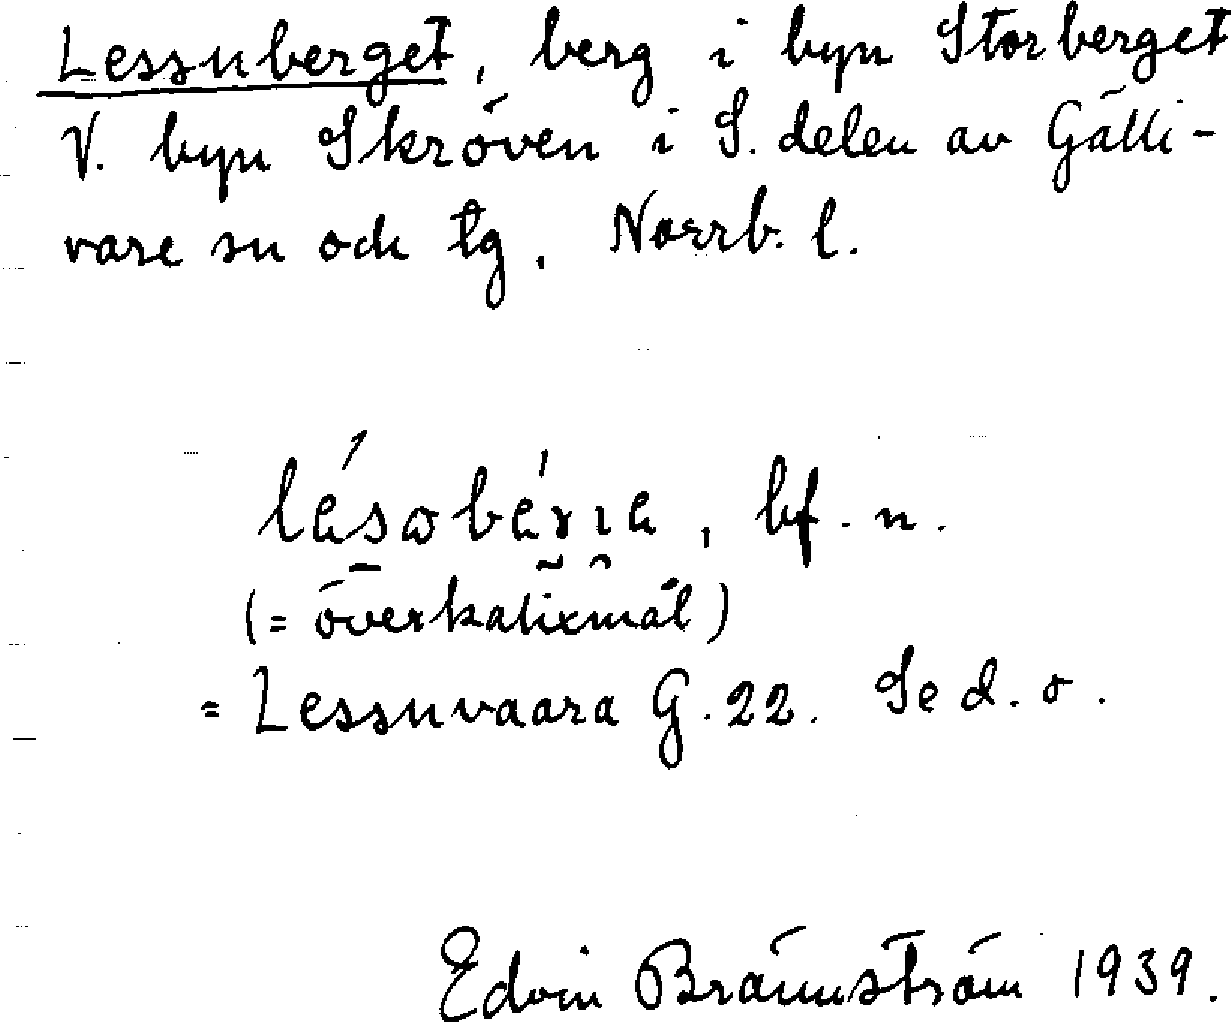 Lessuberget, berg i byn Storberget
V. byn Skröven i S. delen av Gälli-
vare sn och tg, Norrb. l.
bf. n.
(= överkalixmål)
= Lessuvaara G. 22. Se d. o.
Edvin Brännström 1939.